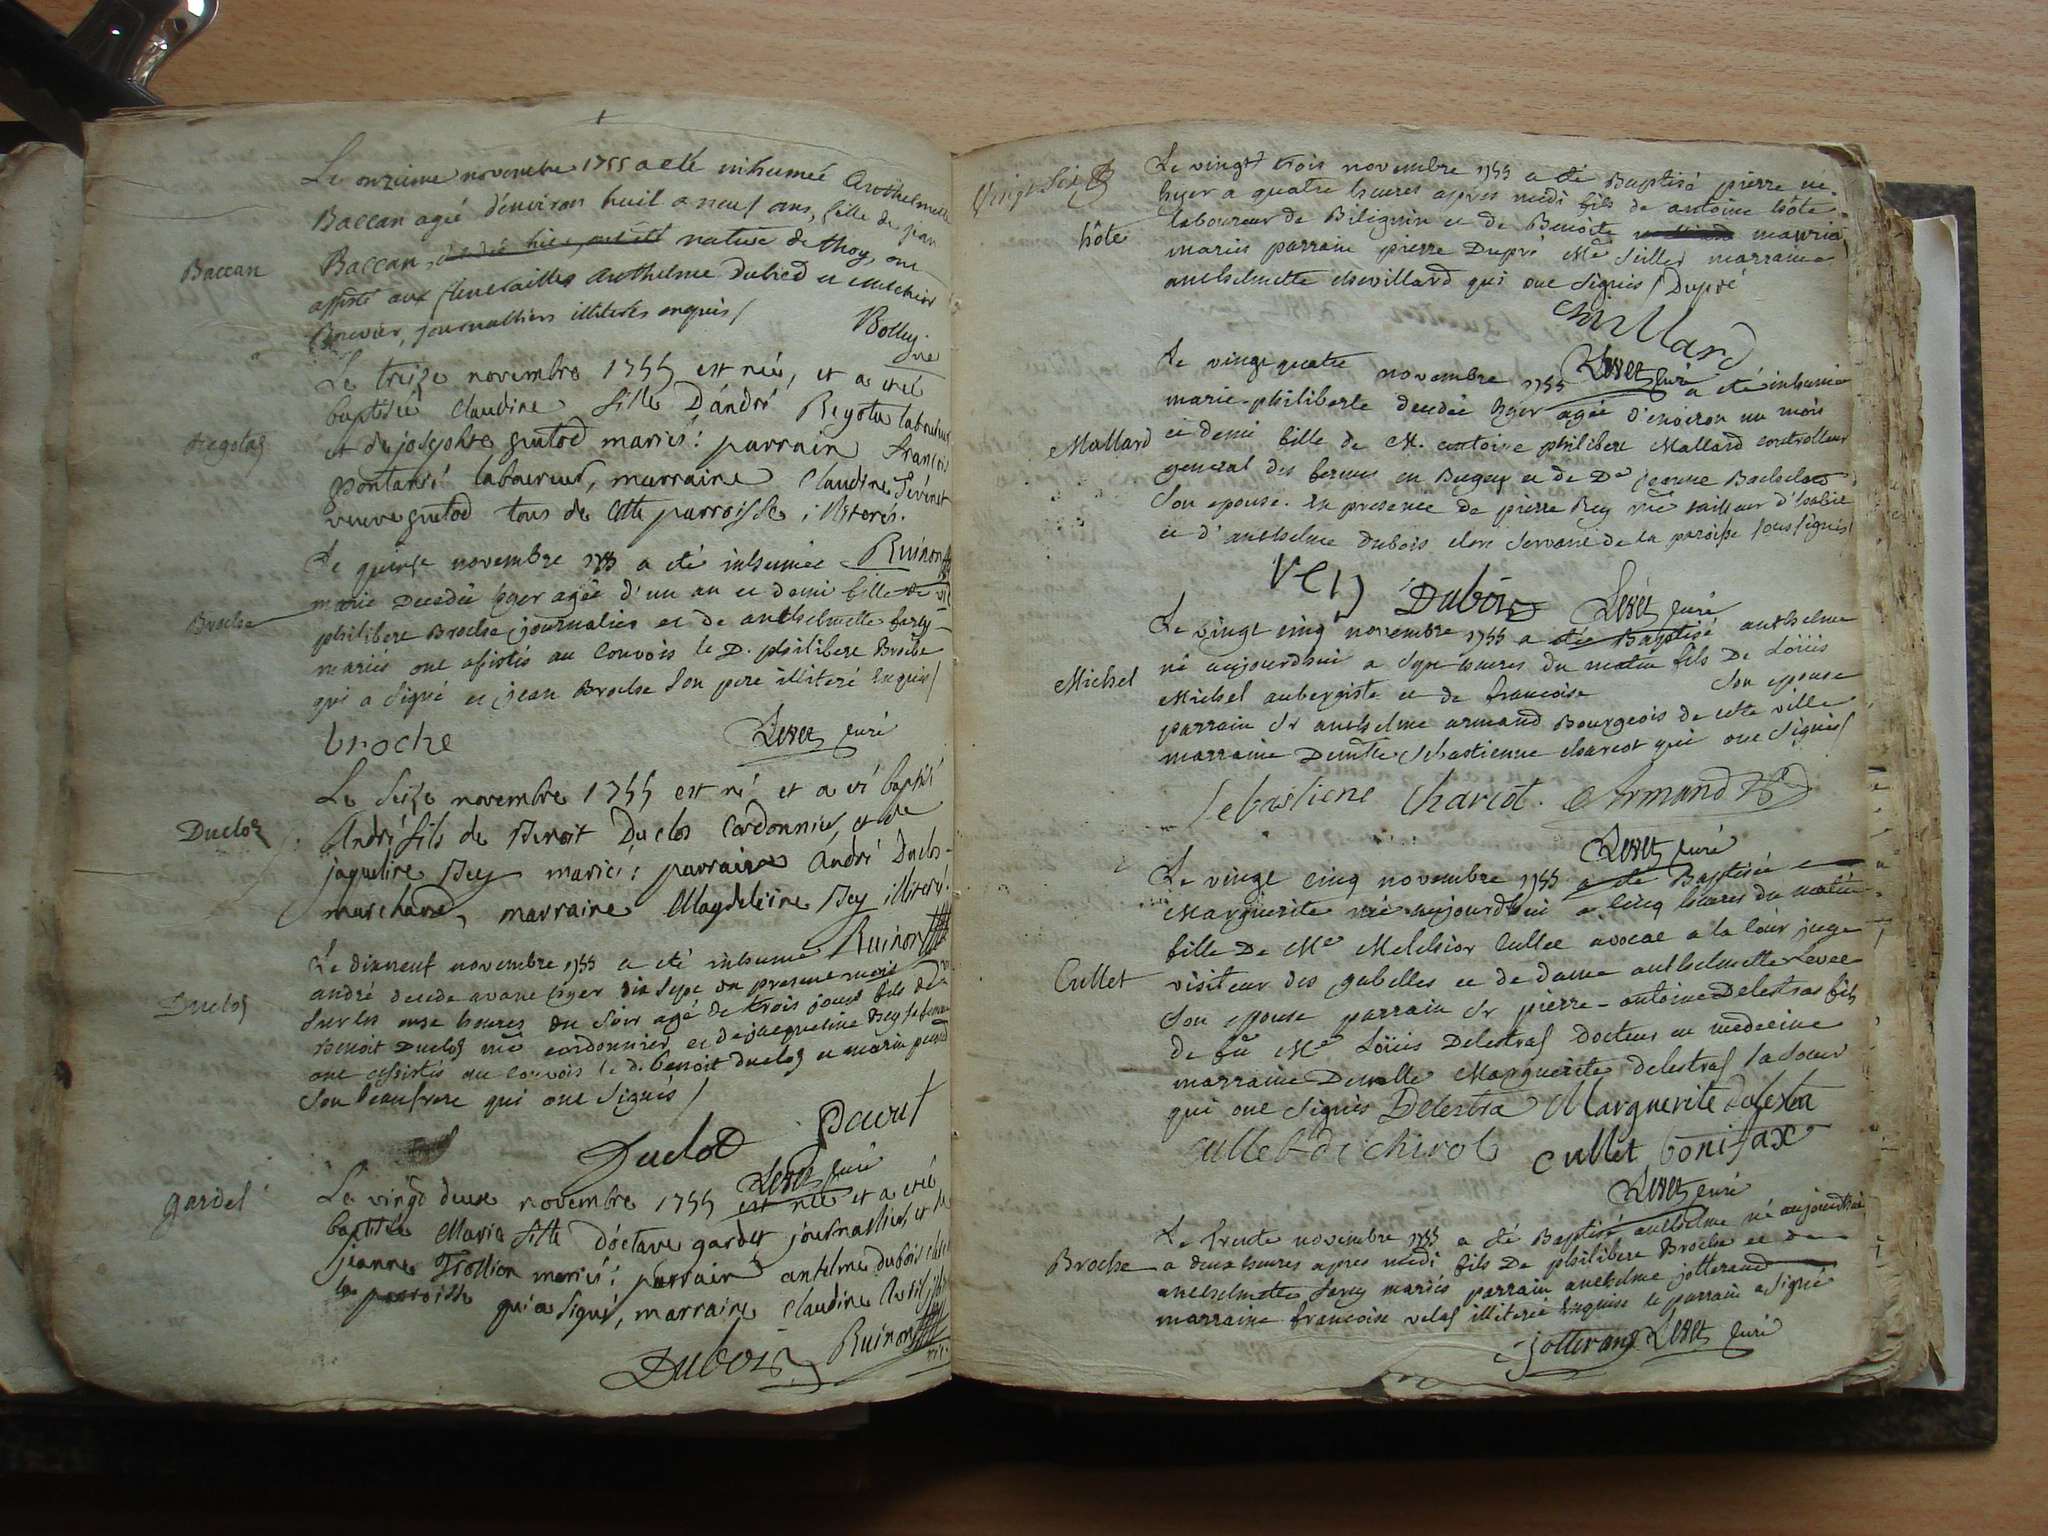 Le onzieme novembre 1755 a eté inhumeé Anthelmette
Baccan ageé d'environ huit a neuf ans, fille de jean
Baccan
Baccan, native de thoy, ont
assisté aux funerailles Anthelme Dubied et melchior
Bouvier, journalliers illiterés enquis /
Bolley
vic
Le treize novembre 1755 est neé, et a eté
baptiseé Claudine fille D'andré Reyota laboureur
Regotaz
et de josephte guitod mariés: parrain francois
pontanié laboureur, marraine Claudine
veuve guitod tous de cette parroisse, illiterés.
Ruinon
vic
Le quinze novembre 1755 a été inhumée
marie Decedée hyer agée d'un an et demi fille de
Broche
philibert Broche journalier et de anthelmette farcy
mariés ont assistés au Convois le D. philibert Broche
qui a signé et jean Broche Son pere illiteré Enquis /
broche
Levet Curé
Le Seize novembre 1755 est né et a eté baptisé
Duclos
André fils de Benoit Duclos Cordonnier, et de
jaqueline Bey mariés: parrain André Duclos
marchand, marraine Magdeleine Bey illiteré.
Ruinon
Le dixneuf novembre 1755 a eté inhumé
Duclos
andré decedé avant hyer dix sept du present mois
Sur les onze heures du Soir agé de trois jours fils de
Benoit Duclos me cordonnier et de jacqueline Bey sa femme
ont assistés au convois le d. benoit duclos et marin
Son beaufrere qui ont Signés /
Duclos
Levet Curé
gardet
Le vingt deux novembre 1755 est neé et a eté
baptiseé Marie fille d'octave gardet journallier et de
jeanne Trollion mariés: parrain antelme dubois
la parroisse qui a signé, marraine Claudine
Dubois
Ruinon
vic.
Vingt Six
Le vingt trois novembre 1755 a été Baptisé pierre né
hyer a quatre heures apres midi fils de antoine hôte
hôte
laboureur de Bilignin et de Benoite
mariés parrain pierre Dupré Me Sellier marraine
anthelmette chevillard qui ont Signés / Dupré
Levet Curé
Le vingt quatre novembre 1755 a été inhumée
marie-philiberte decedée hyer agée d'environ un mois
Mallard
et demi fille de M. antoine philibert Mallard controlleur
general des fermes en Bugey et de De jeanne
Son epouse. En presence de pierre Rey me tailleur d'habit
et d'anthelme dubois clerc servant de la paroisse Soussignés
rey Dubois Levet Curé
Le vingt cinq novembre 1755 a été Baptisé anthelme
né aujourdhui a Sept heures du matin fils De Loüis
Michel
Michel aubergiste et de francoise Son epouse
parrain Sr anthelme armand Bourgeois de cette ville
marraine Demlle Sebastienne charcot qui ont Signés /
Sebastiene Charcot. Armand
Levet Curé
Le vingt cinq novembre 1755 a été Baptisée
Marguerite née aujourdhui a Cinq heures du matin
fille De Me Melchior Cullet avocat a la Cour juge
Cullet
visiteur des gabelles et de dame anthelmette Levet
Son epouse parrain Sr pierre-antoine Delestras fils
de fû Me Loüis Delestras docteur en medecine
marraine Demlle Marguerite delestras Sa Soeur
qui ont Signés Delestra Marguerite delestra
cullet bonifax
Levet Curé
Le trente novembre 1755 a été Baptisé anthelme né aujourdhui
Broche
a deux heures apres midi fils De philibert Broche et de
anthelmette farcy mariés parrain anthelme jotterand
marraine francoise velas illiterée Enquise le parrain a Signé
jotterand Levet Curé